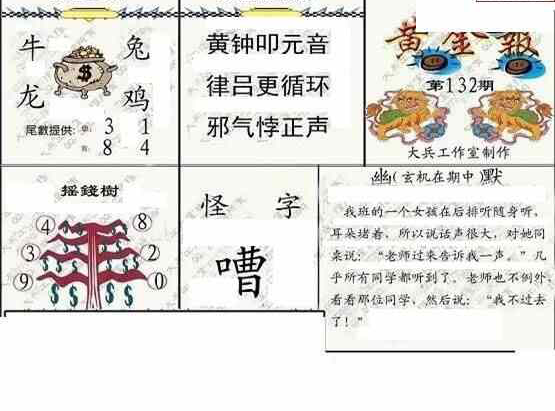 牛 兔
龙 鸡
尾數提供: 3 1
8 4
黄钟叩元音
律吕更循环
邪气悖正声
黄金報
第132期
大兵工作室制作
摇錢樹
4 8
3 2
9 0
怪 字
嘈
幽(玄机在期中 默
我班的一个女孩在后排听随身听,
耳朵堵着,所以说话声很大,对她同
来说:“老师过来告诉我一声。”几
乎所有同学都听到了,老师也不例外,
看看那位同学,然后说:“我不过去
了!”